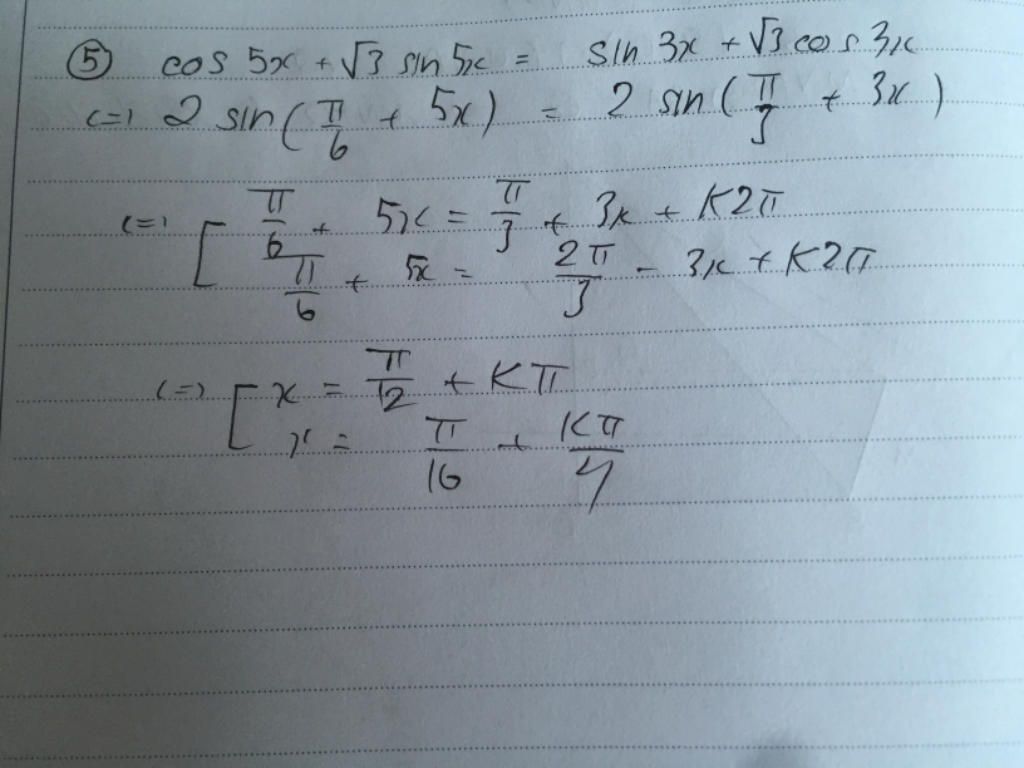 ⑤ cos 5x + √3 sin 5x = sin 3x + √3 cos 3x
(=) 2 sin(π/6 + 5x) = 2 sin(π/3 + 3x)
(=) [ π/6 + 5x = π/3 + 3x + K2π
π/6 + 5x = 2π/3 - 3x + K2π
(=) [ x = π/12 + Kπ
x = π/16 + Kπ/4